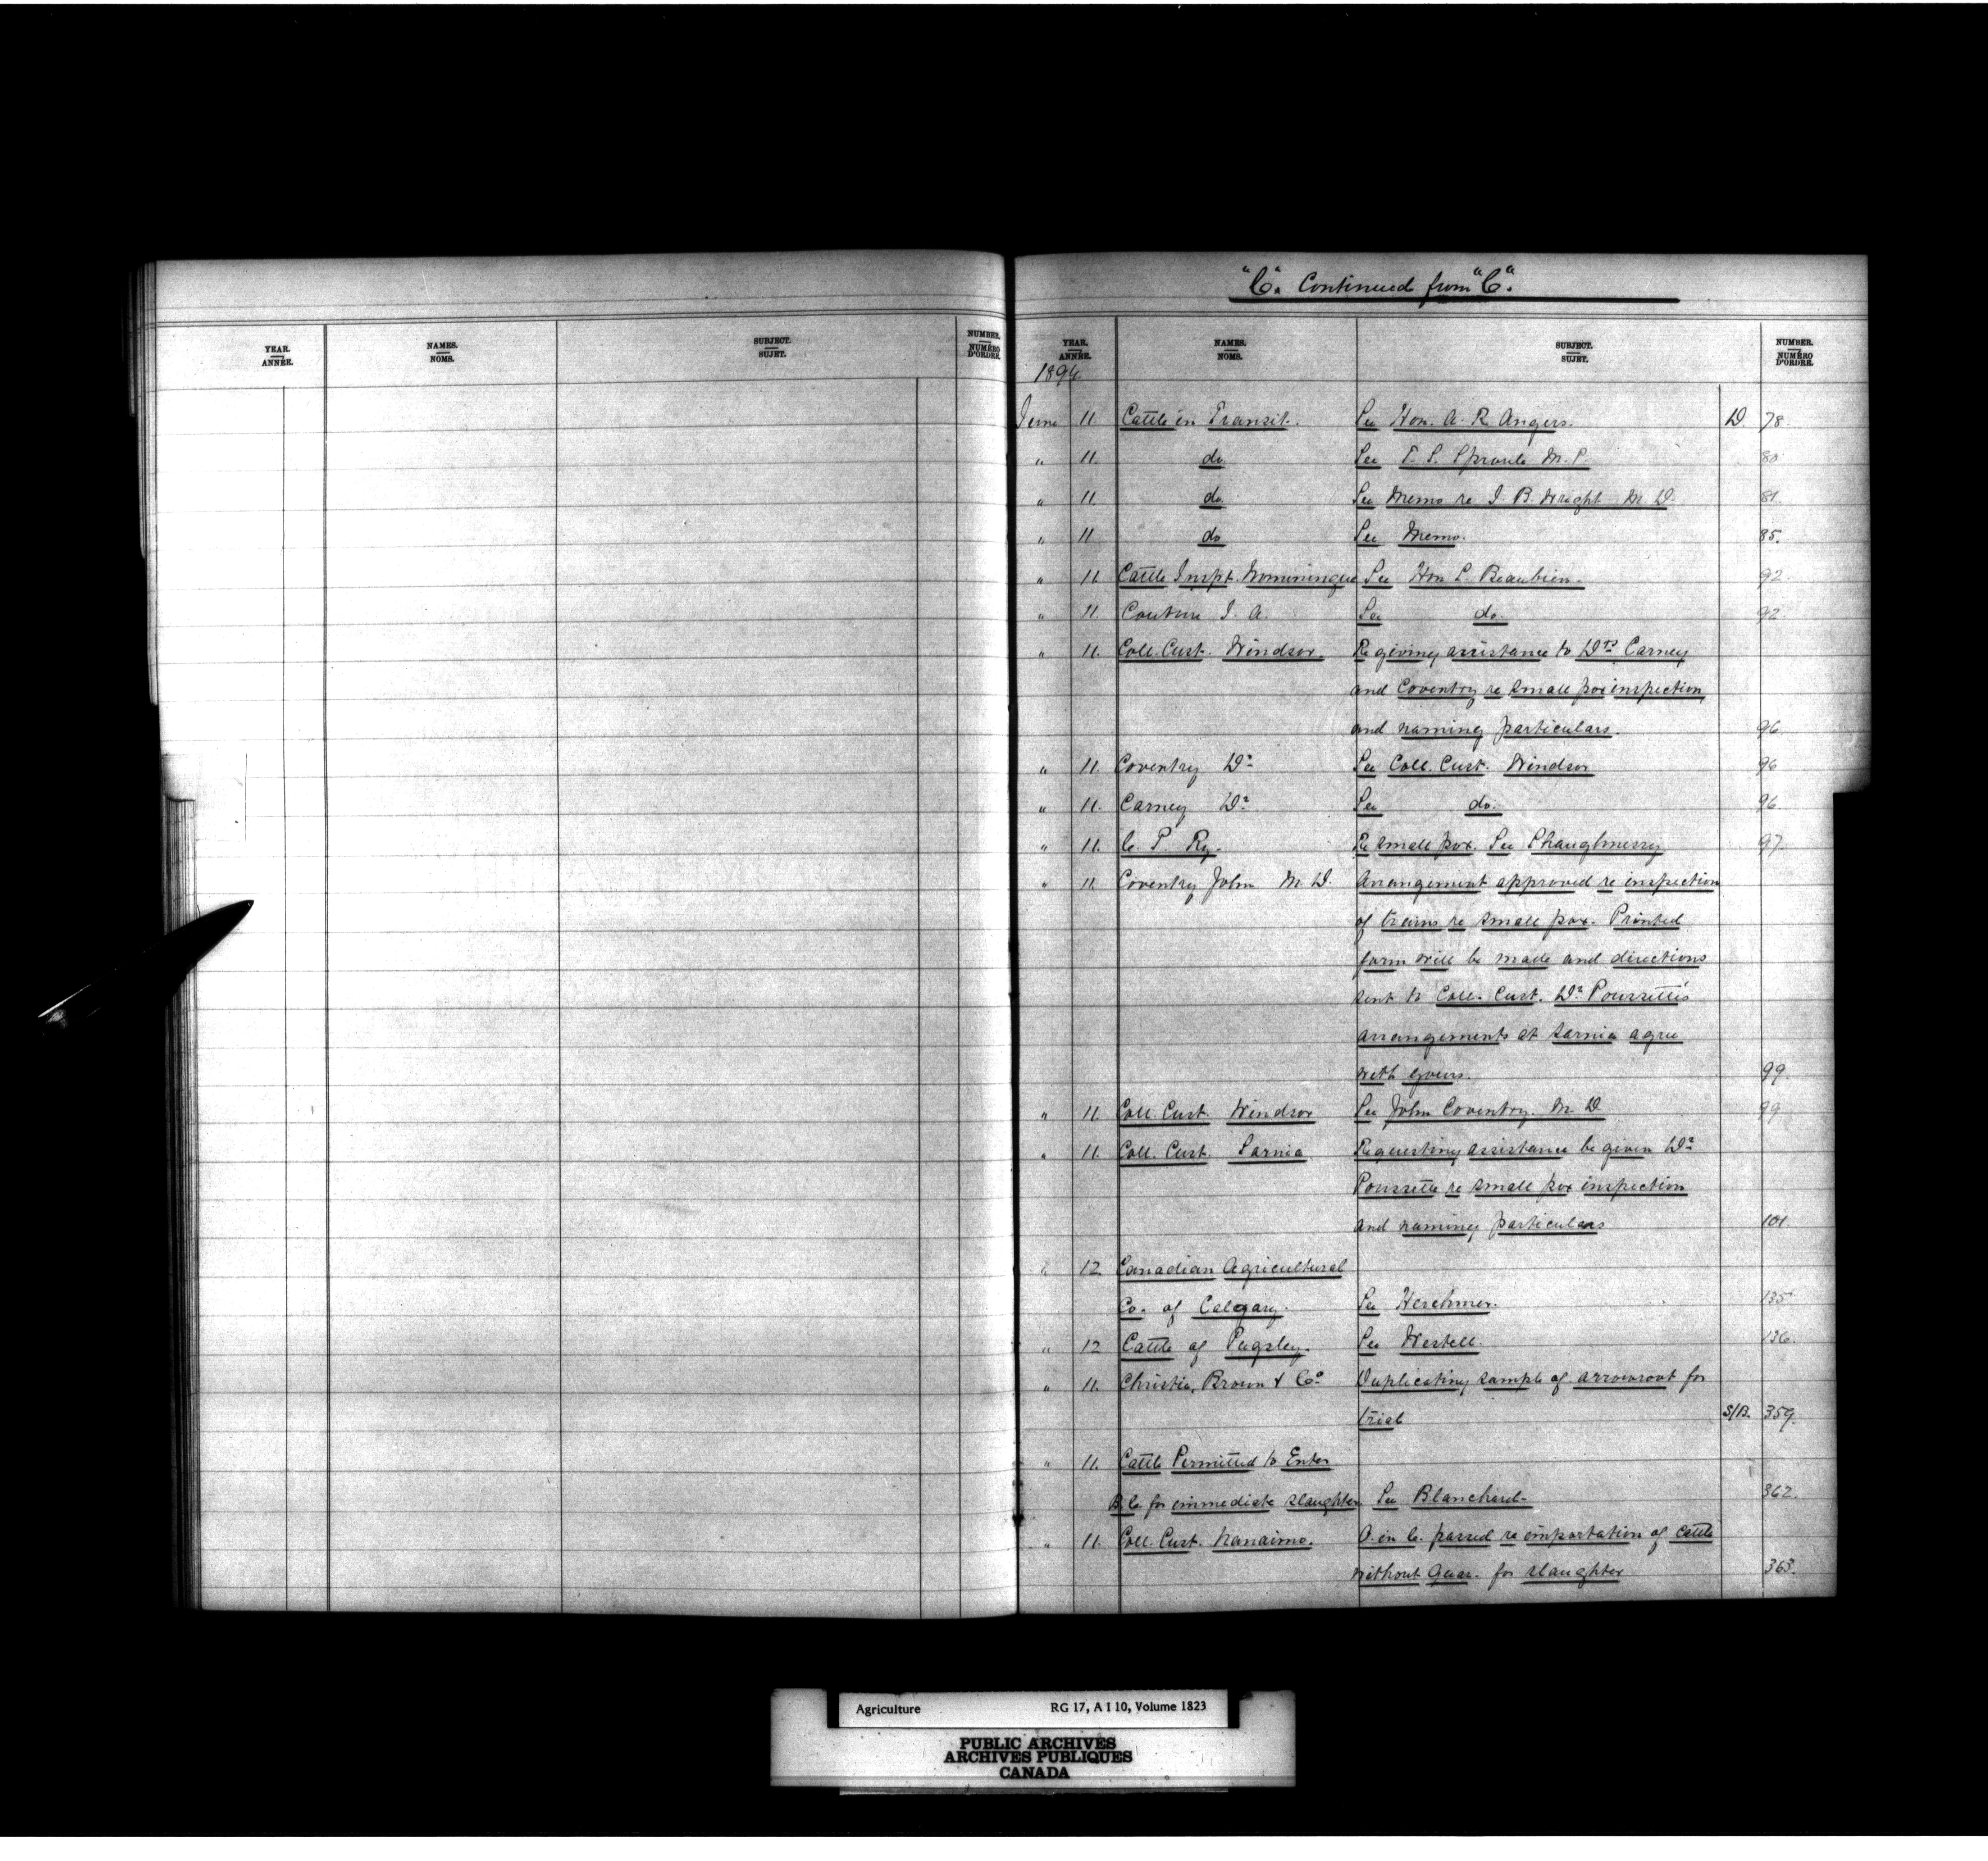 "C". Continued from "C".
YEAR. ANNÉE. NAMES. NOMS. SUBJECT. SUJET. NUMBER. NUMÉRO D'ORDRE.
YEAR. ANNÉE. NAMES. NOMS. SUBJECT. SUJET. NUMBER. NUMÉRO D'ORDRE.
1894.
June 11. Cattle in Transit. See Hon. A. R. Angers. D. 78.
" 11. do See T. S. Sproule M. P. 80
" 11. do See Memo re J. B. Wright M. D. 81.
" 11 do See Memo. 85.
" 11. Cattle Inspt. Nominingue See Hon L. Beaubien. 92.
" 11. Couture J. A. See do. 92.
" 11. Coll. Cust. Windsor. Re giving assistance to Drs Carney
and Coventry re small pox inspection
and naming particulars. 96.
" 11. Coventry Dr See Coll. Cust. Windsor 96
" 11. Carney Dr See do. 96.
" 11. C. P. Ry. Re small pox. See Shaughnessy 97.
" 11. Coventry John M. D. Arrangement approved re inspection
of trains re small pox. Printed
form will be made and directions
sent to Coll. Cust. Dr Poussette's
arrangements at Sarnia agree
with yours. 99.
" 11. Coll. Cust. Windsor See John Coventry. M D 99
" 11. Coll. Cust. Sarnia Requesting assistance be given Dr
Poussette re small pox inspection
and naming particulars 101.
" 12 Canadian Agricultural
Co. of Calgary. See Herchmer. 135
" 12 Cattle of Pugsley. See Westell. 136.
" 11. Christie, Brown & Co Duplicating sample of arrowroot for
trial S/B. 359.
" 11. Cattle Permitted to Enter
B. C. for immediate slaughter See Blanchard. 362.
" 11. Coll. Cust. Nanaimo. O. in C. passed re importation of cattle
without Quar. for slaughter 363.
Agriculture RG 17, A I 10, Volume 1823
PUBLIC ARCHIVES
ARCHIVES PUBLIQUES
CANADA